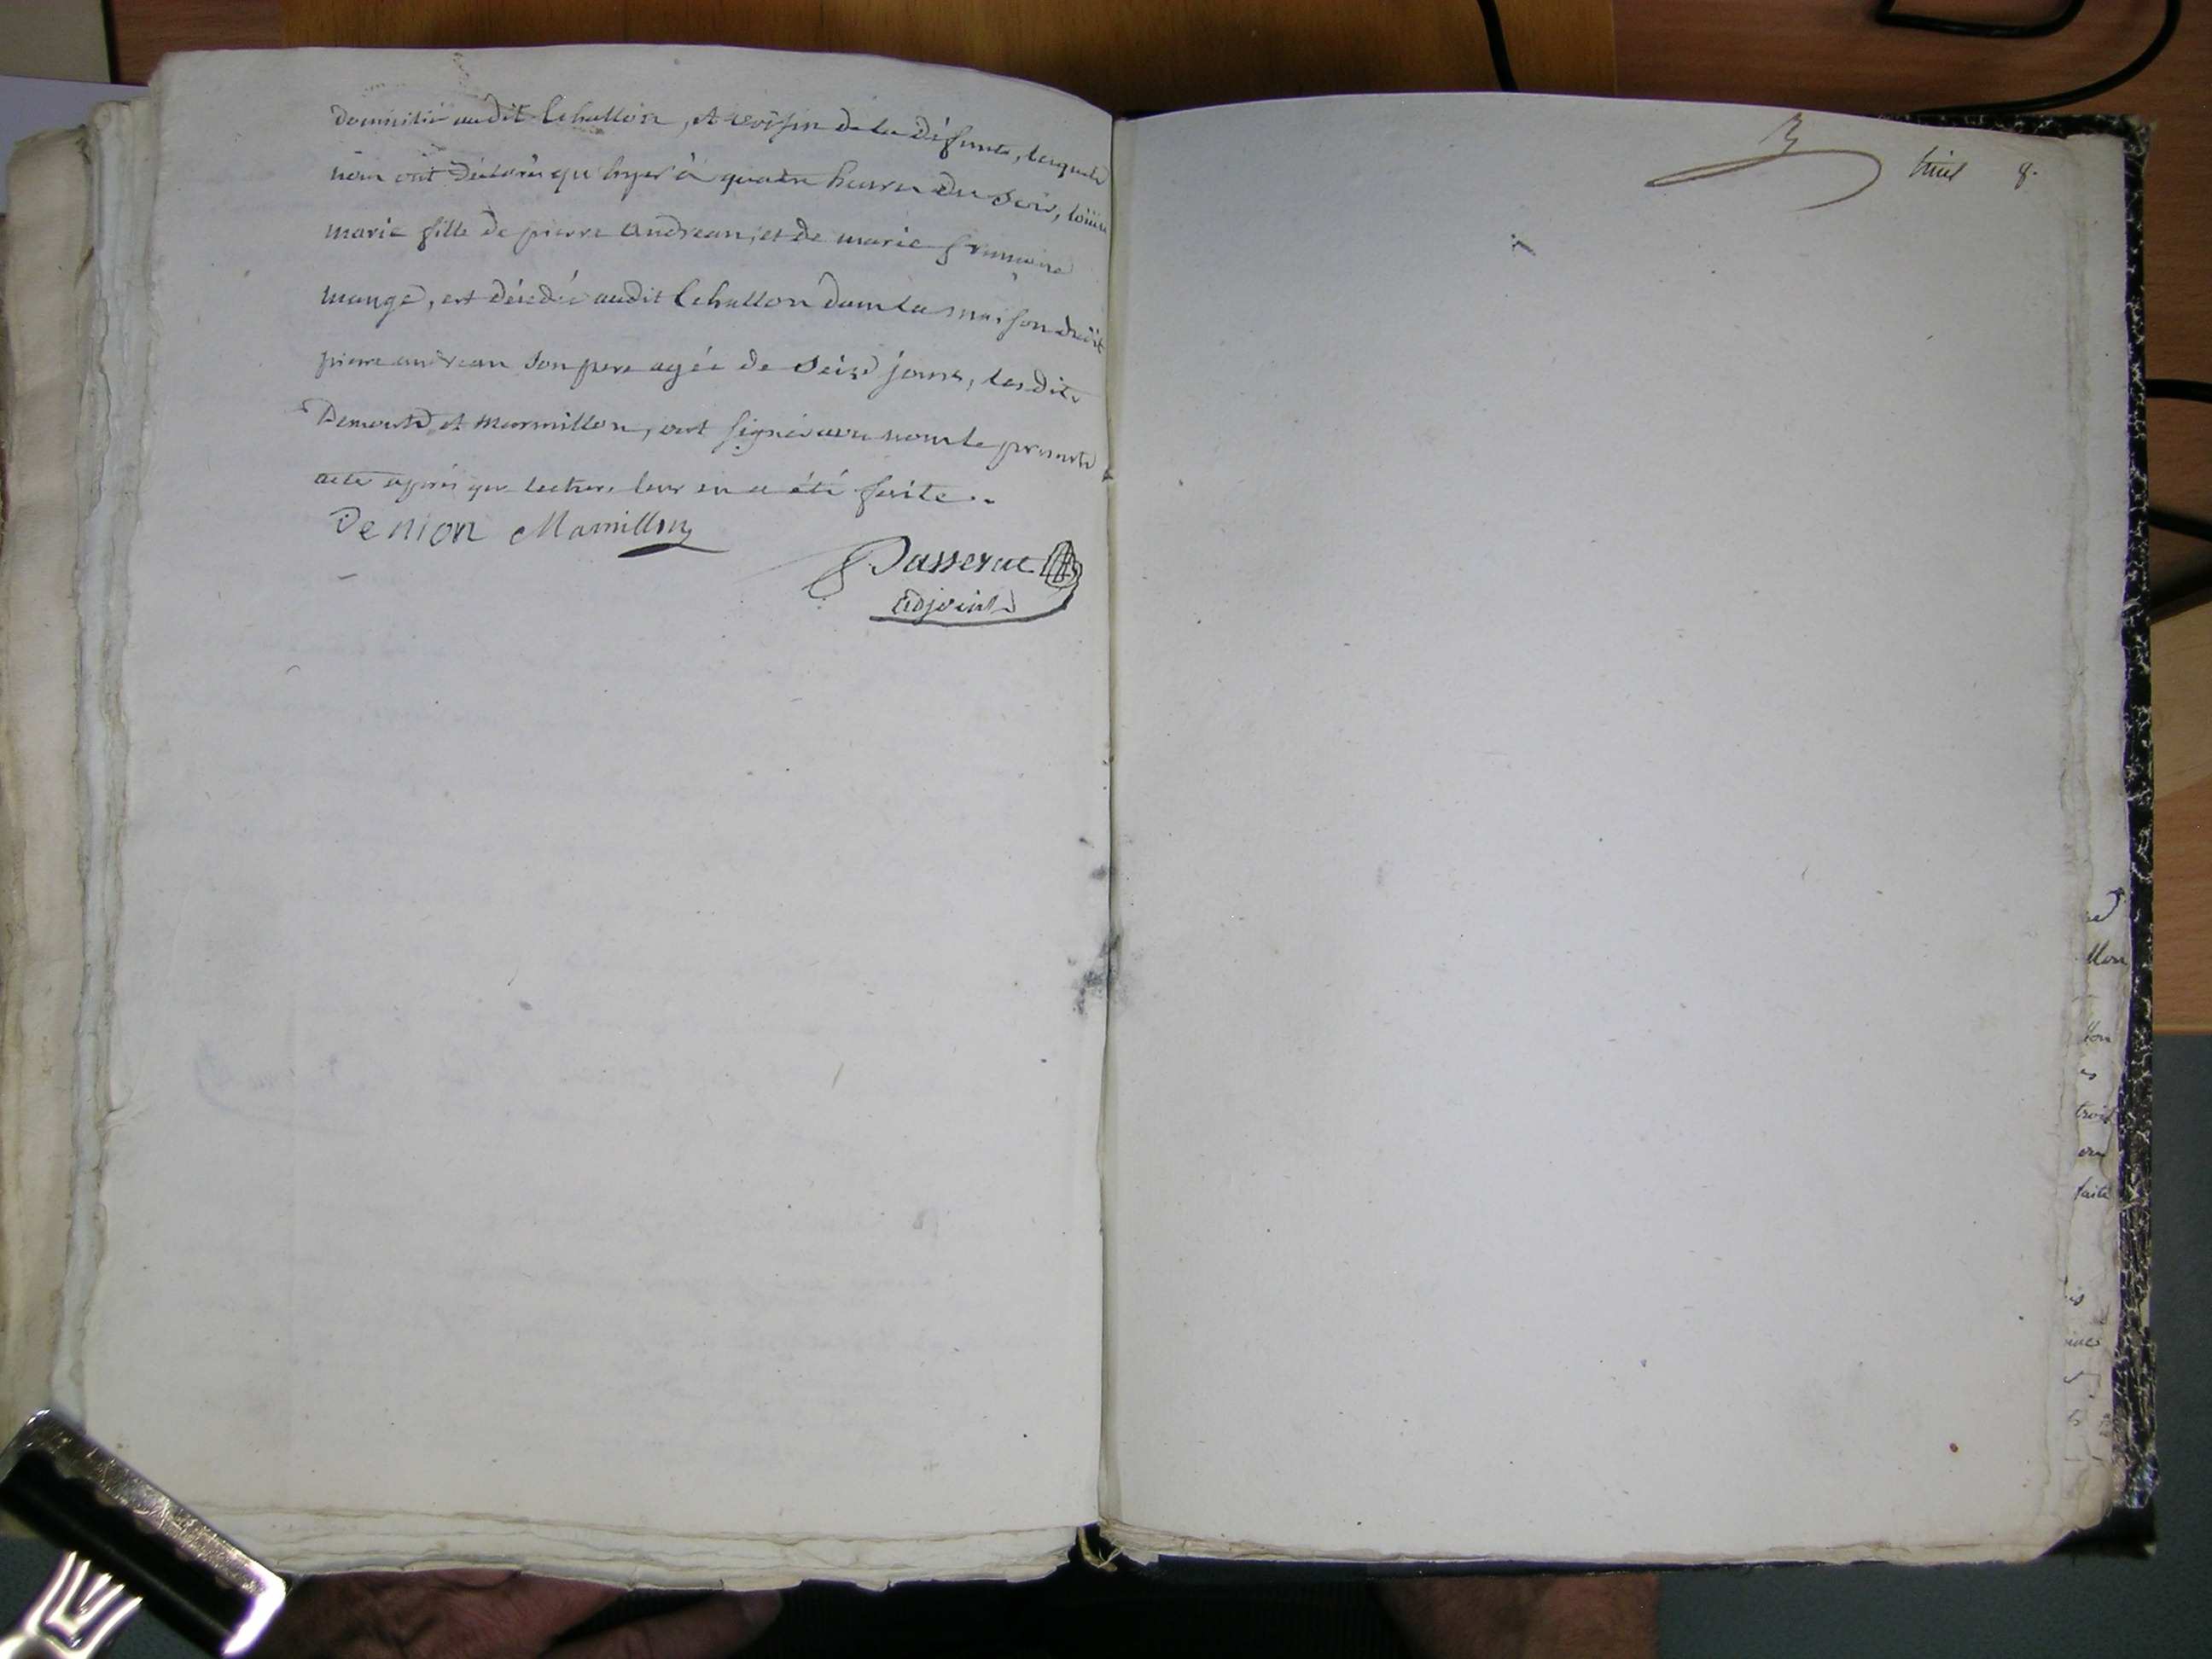 domicilié audit Echallon, et voisin de la défunte, lesquels
nous ont déclarés qu'hyer à quatre heures du soir, loüise
marie fille de pierre andréan, et de marie françoise
mange, est décédée audit Echallon dans la maison dudit
pierre andréan son pere agée de seize jours, lesdits
et marmillon, ont signés avec nous le present
acte après que lecture leur en a été faite..
Denion Marmillon
Passerat
adjoint
huit 8.